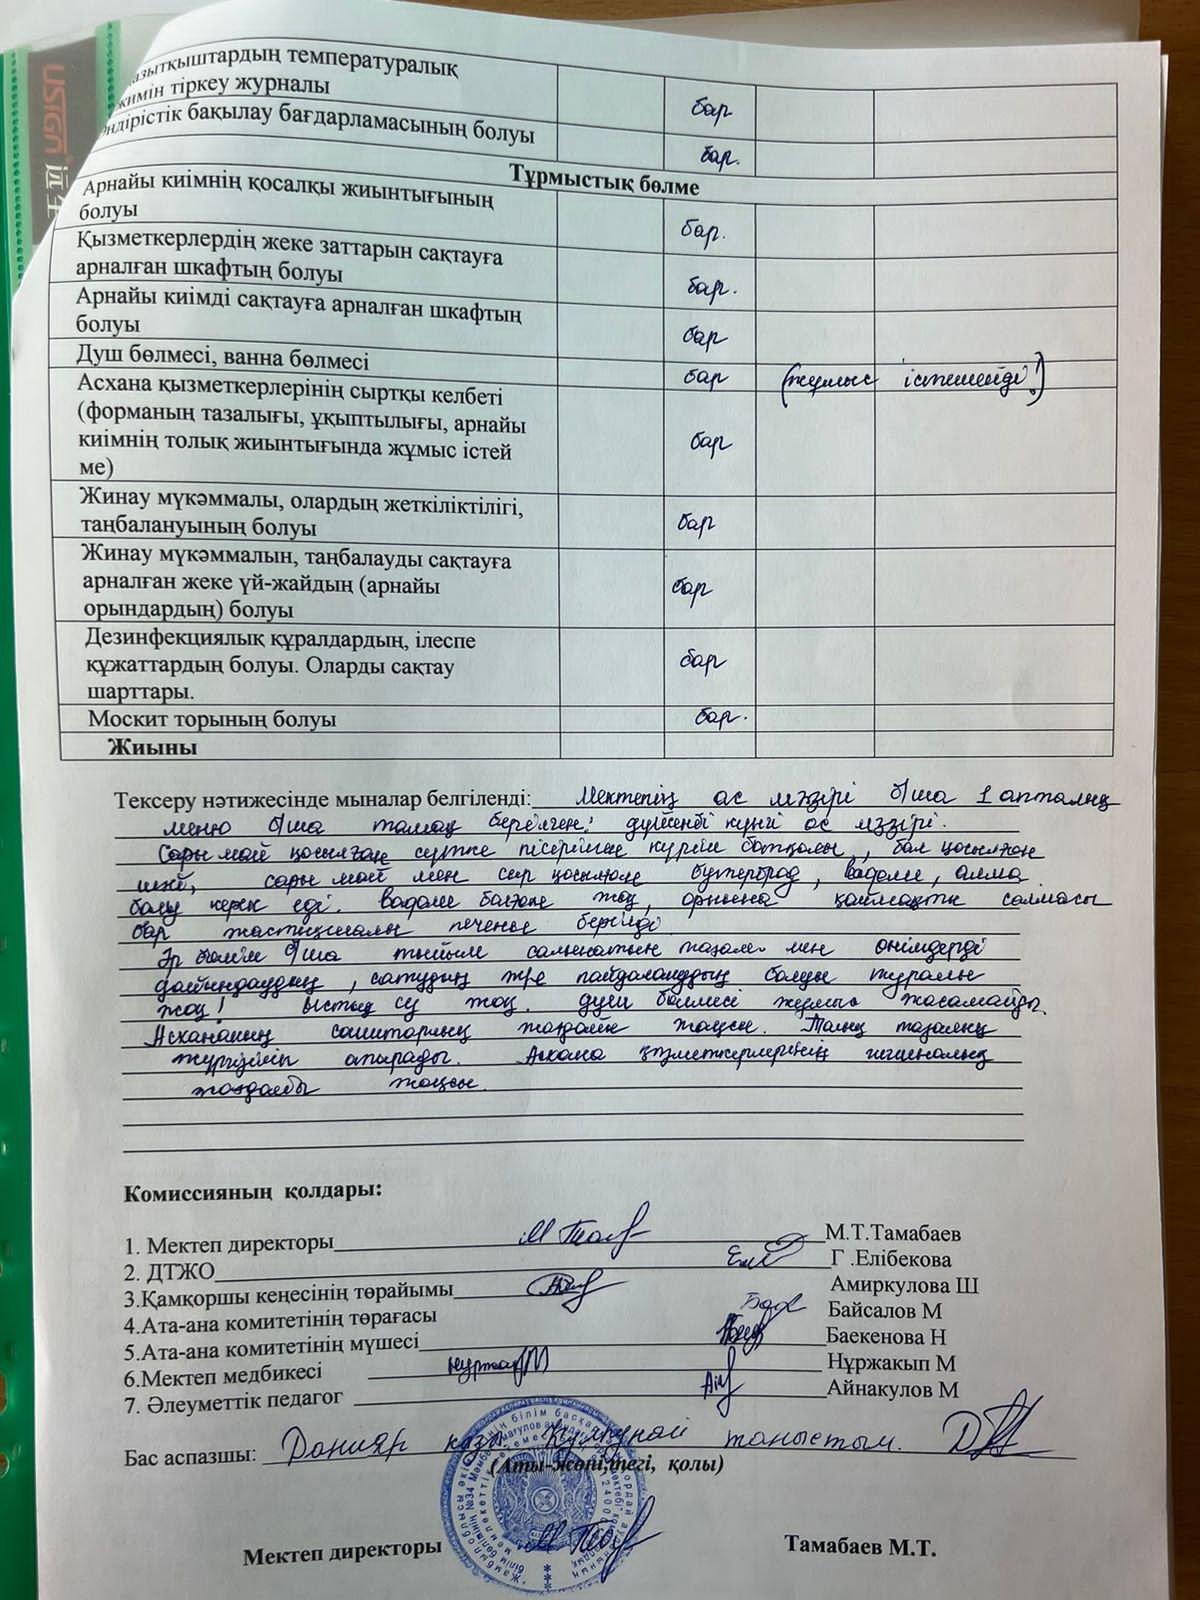 USIGN
азытқыштардың температуралық
жимін тіркеу журналы
бар
ндірістік бақылау бағдарламасының болуы
бар.
Тұрмыстық бөлме
Арнайы киімнің қосалқы жиынтығының
болуы
бар.
Қызметкерлердің жеке заттарын сақтауға
арналған шкафтың болуы
бар.
Арнайы киімді сақтауға арналған шкафтың
болуы
бар
Душ бөлмесі, ванна бөлмесі
бар (жұмыс істемейді!)
Асхана қызметкерлерінің сыртқы келбеті
(форманың тазалығы, ұқыптылығы, арнайы
киімнің толық жиынтығында жұмыс істей
ме)
бар
Жинау мүкәммалы, олардың жеткіліктілігі,
таңбалануының болуы
бар
Жинау мүкәммалын, таңбалауды сақтауға
арналған жеке үй-жайдың (арнайы
орындардың) болуы
бар
Дезинфекциялық құралдардың, ілеспе
құжаттардың болуы. Оларды сақтау
шарттары.
бар
Москит торының болуы
бар.
Жиыны
Тексеру нәтижесінде мыналар белгіленді: Мектептің ас мәзірі б/ша 1 апталық
меню б/ша тамақ берілген: дүйсенбі күнгі ас мәзірі.
Сары май қосылған сүтке пісірілген күріш ботқасы, бал қосылған
шәй, сары май мен сыр қосылған бутерброд, вафли, алма
болу керек еді. Вафли болған жоқ, орнына қаймақты салмасы
бар печенье берілді
Әр бөлім б/ша тыйым салынатын тағам мен өнімдерді
дайындаудың, сатудың және пайдаланудың болуы туралы
жоқ! ыстық су жоқ. душ бөлмесі жұмыс жасамайды.
Асхананың санитарлық жағдайы жақсы. Талық тазалық
жүргізіліп отырады. Асхана қызметкерлерінің гигиеналық
жағдайы жақсы.
Комиссияның қолдары:
1. Мектеп директоры М.Т.Тамабаев
2. ДТЖО Г .Елібекова
3.Қамқоршы кеңесінің төрайымы Амиркулова Ш
4.Ата-ана комитетінің төрағасы Байсалов М
5.Ата-ана комитетінің мүшесі Баекенова Н
6.Мектеп медбикесі Нұржакып М
7. Әлеуметтік педагог Айнакулов М
Бас аспазшы: Данияр қызы Күлкүнай таныстым.
(Аты-жөні,тегі, қолы)
Мектеп директоры Тамабаев М.Т.